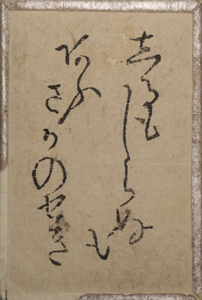 しるもしらぬも
あふさかのせき